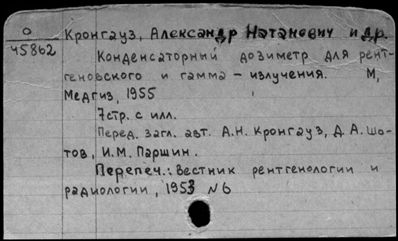 О
45862
Кронгауз, Александр Натанович и др.
Конденсаторный дозиметр для рент-
геновского и гамма – излучения. М,
Медгиз, 1955
7стр. с илл.
Перед. загл. авт. А.Н. Кронгауз, Д. А. Шо-
тов, И.М. Паршин.
Перепеч.: Вестник рентгенологии и
радиологии, 1953 №6